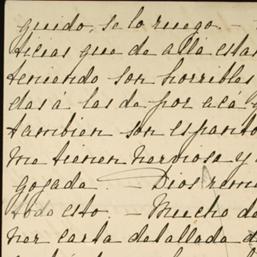 guido, se lo ruego. —
ticias que de allá estas
teniendo son horribles
das á las de por acá q
tambien son espanto
me tienen nerviosa y a
gogada. — Dios remi
todo esto. — Mucho de
ner carta detallada d